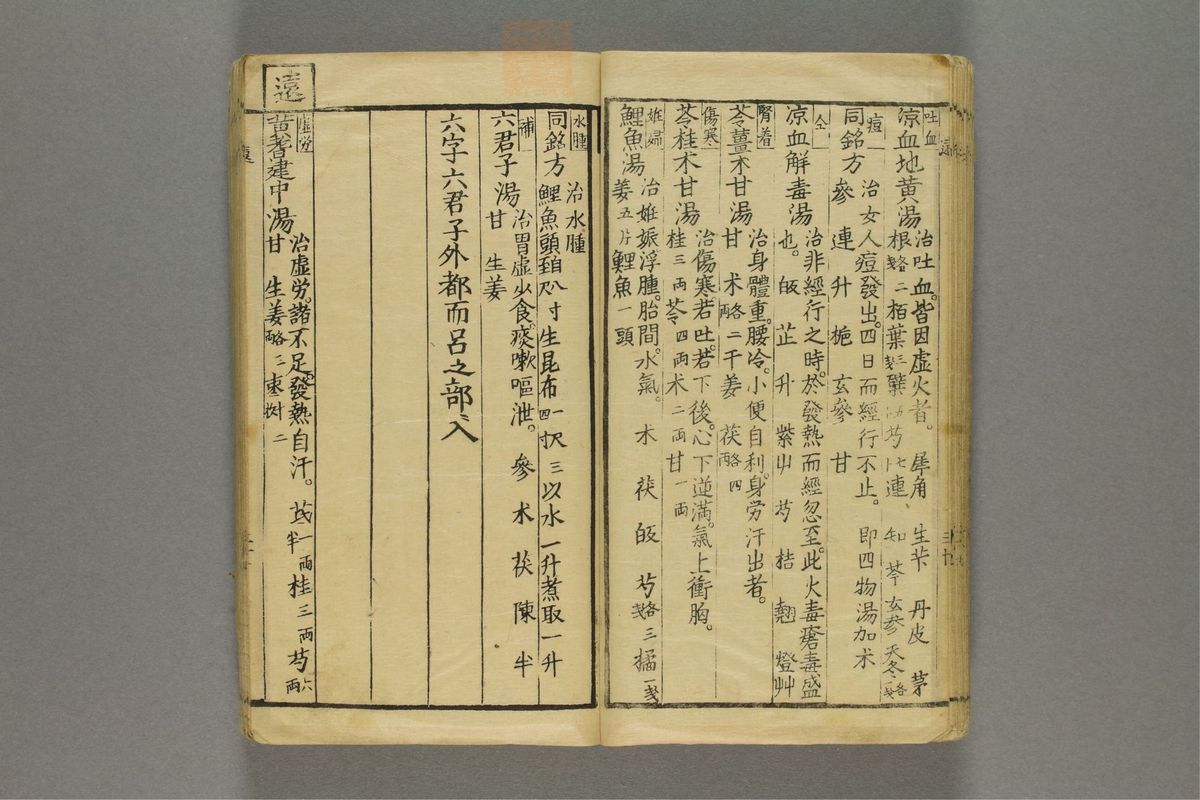 吐血
涼血地黄湯
治吐血。皆因虚火者。 犀角 生芐 丹皮 茅
根 各戔 二 栢葉
痘
同銘方
治女人痘發出。四日而經行不止。即四物湯加术
參 連 升 梔 玄參 甘
仝
凉血解毒湯
治非經行之時。於發熱而經忽至。此火毒瘡毒盛
也。 皈 芷 升 紫 芍 桔 翹 燈艸
腎着
苓薑术甘湯
治身體重。腰冷。小便自利。身労汗出者。
甘 术 各両 二 干姜 茯 各両 四
傷寒
苓桂术甘湯
治傷寒若吐。若下後。心下逆滿。氣上衝胸。
桂 三両 苓 四両 术 二両 甘 一両
姙婦
鯉魚湯
治姙娠浮腫。胎間。水氣。 术 茯 皈 芍 各戔 三 橘 一戔
姜 五片 鯉魚 一頭
水腫
同銘方
治水腫
鯉魚頭 生昆布 以水一升煮取一升
補
六君子湯
治胃虚少食。痰嗽嘔泄。 參 术 茯 陳 半
甘 生姜
六字六君子外都而呂之部ニ入
遠
虚労
黄耆建中湯
治虚労。諸不足發熱自汗。 芪 一両半 桂 三両 芍 六両
甘 生姜 各両 三 棗